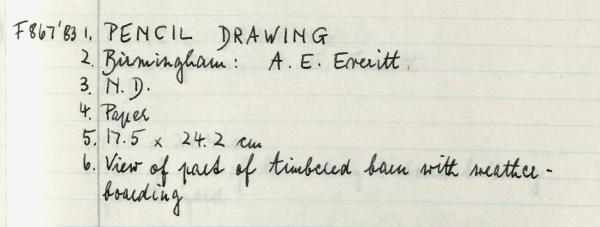 F867'83 1. PENCIL DRAWING
2. Birmingham: A. E. Everitt
3. N.D.
4. Paper
5. 17.5 x 24.2 cm
6. View of part of timbered barn with weather-
boarding